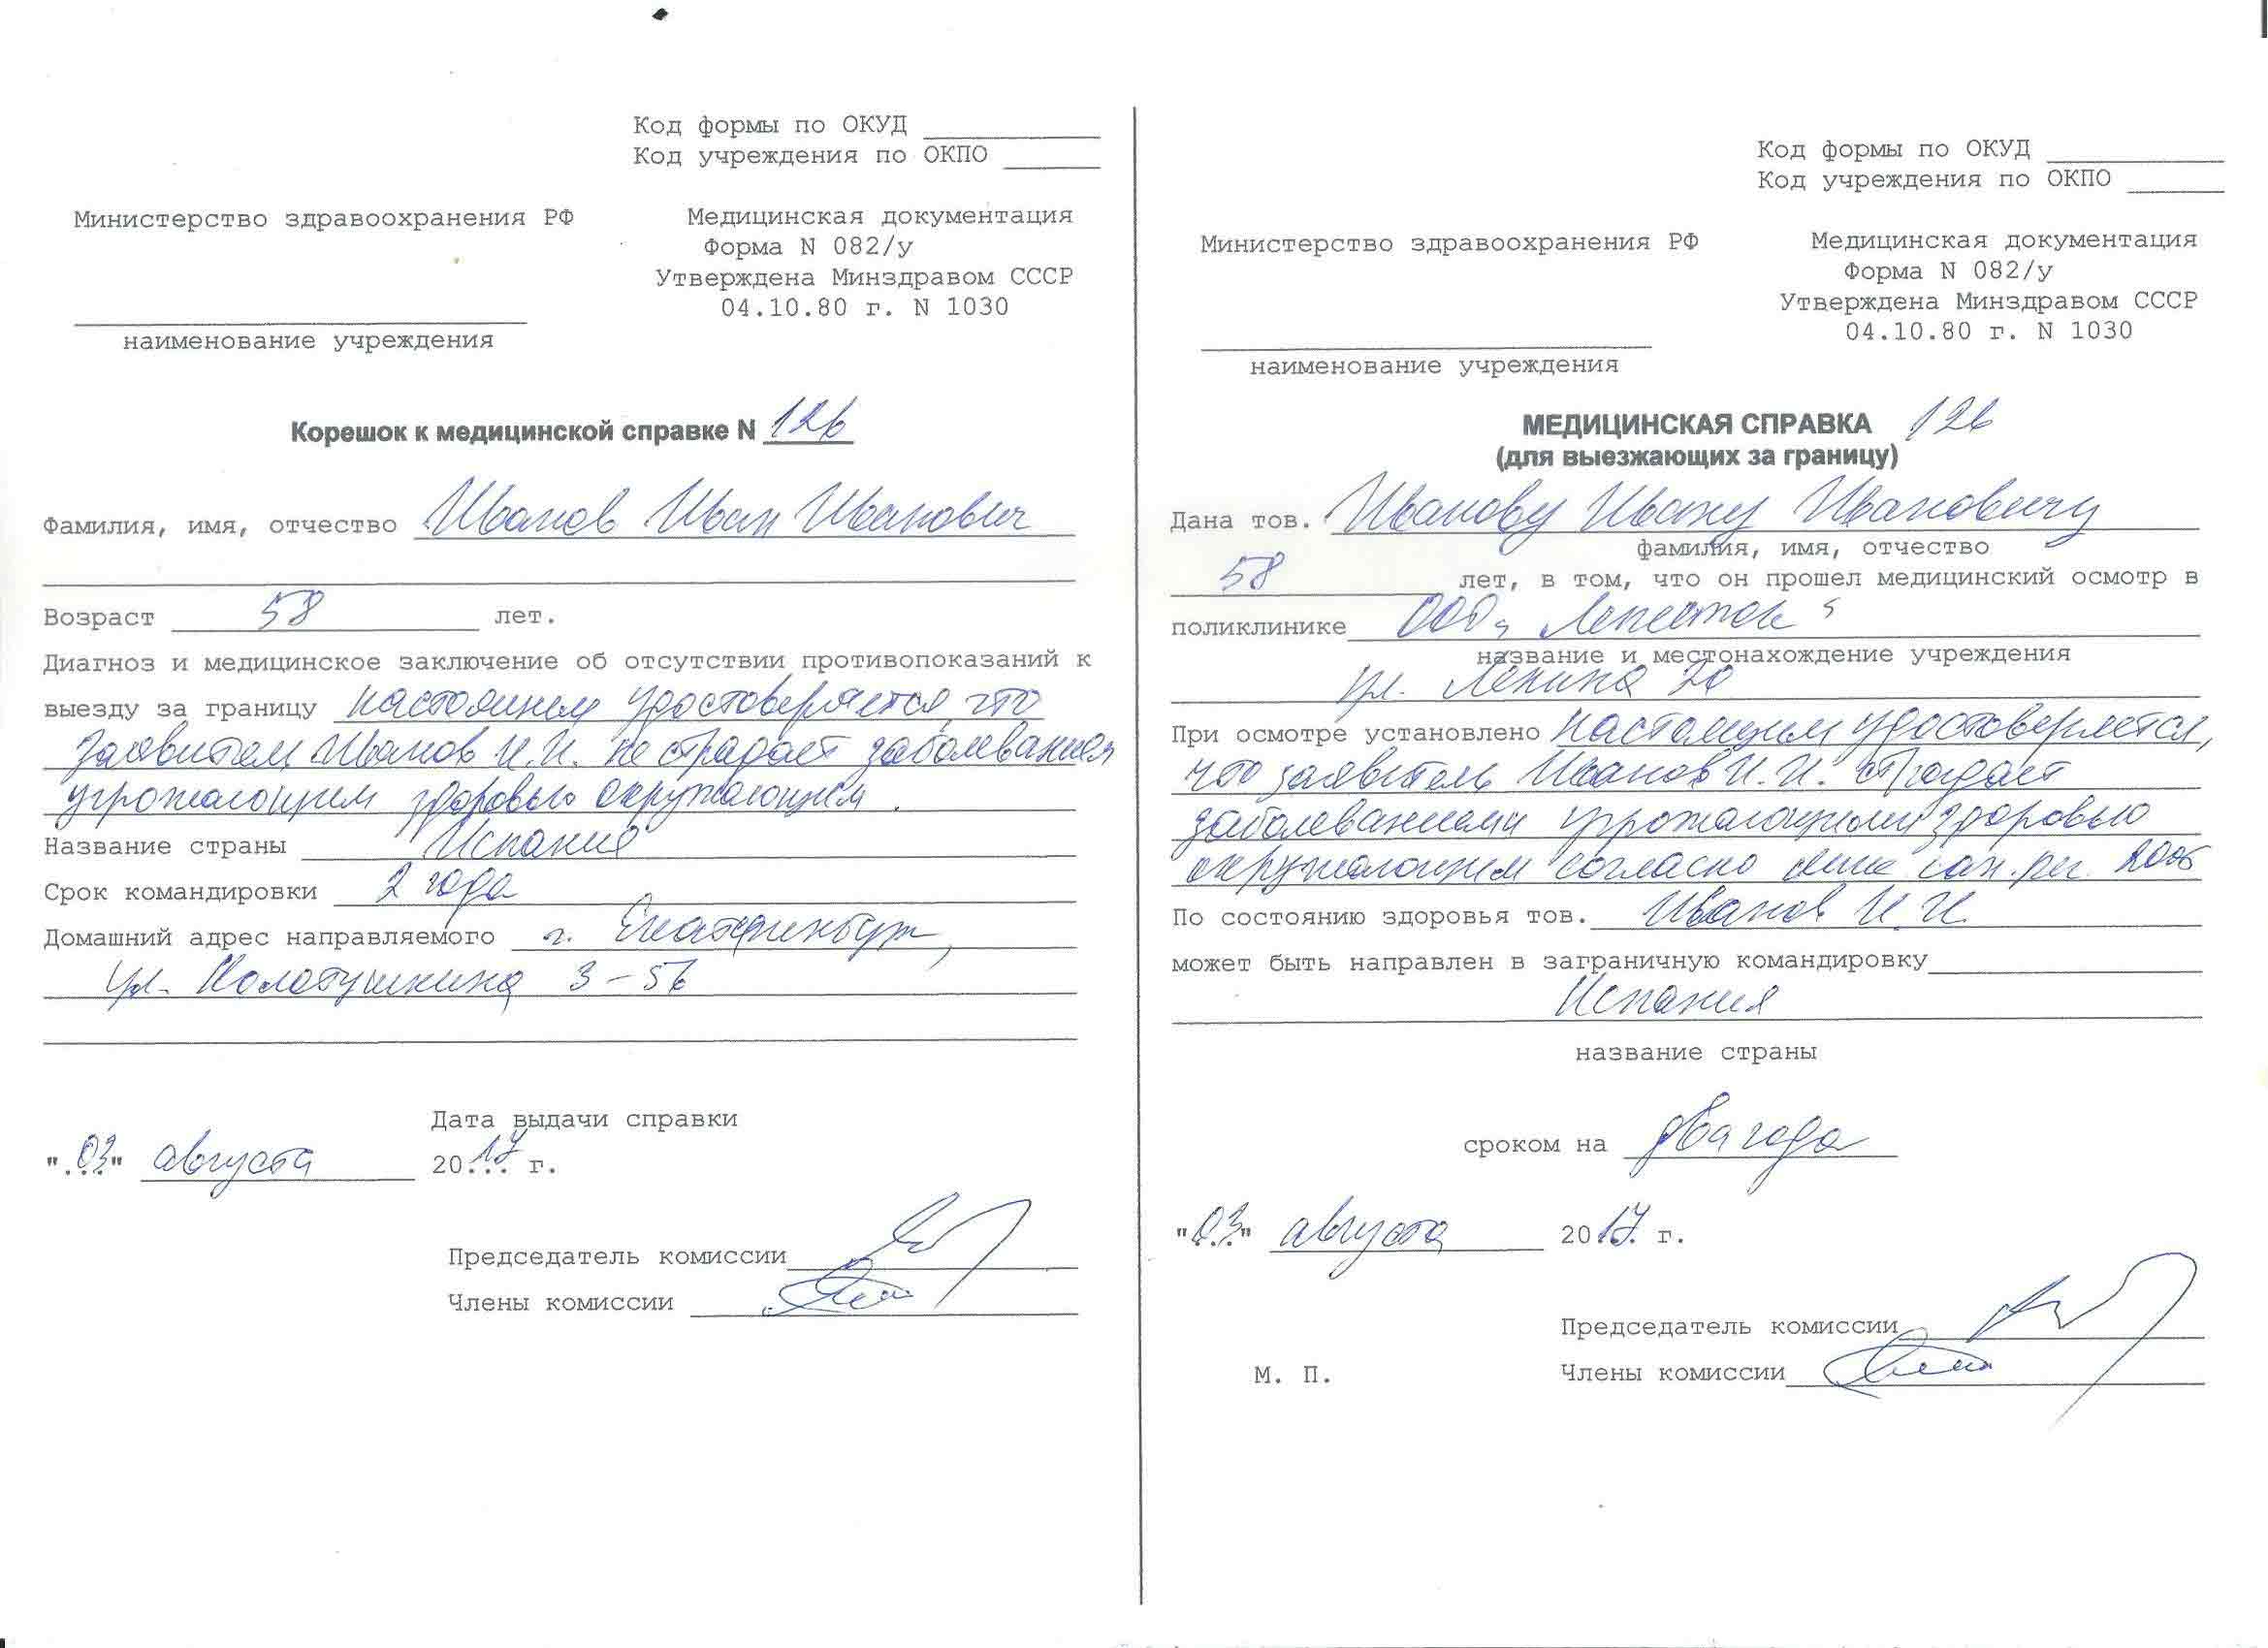 Код формы по ОКУД
Код учреждения по ОКПО
Министерство здравоохранения РФ
Медицинская документация
Форма N 082/у
Утверждена Минздравом СССР
04.10.80 г. N 1030
наименование учреждения
Корешок к медицинской справке N 126
Фамилия, имя, отчество Иванов Иван Иванович
Возраст 58 лет.
Диагноз и медицинское заключение об отсутствии противопоказаний к
выезду за границу настоящим удостоверяется, что
заявитель Иванов И.И. не страдает заболеванием
угрожающим здоровью окружающим.
Название страны Испания
Срок командировки 2 года
Домашний адрес направляемого г. Екатеринбург,
ул. Колотушкина 3-56
Дата выдачи справки
"03" августа 2017 г.
Председатель комиссии
Члены комиссии
Код формы по ОКУД
Код учреждения по ОКПО
Министерство здравоохранения РФ
Медицинская документация
Форма N 082/у
Утверждена Минздравом СССР
04.10.80 г. N 1030
наименование учреждения
МЕДИЦИНСКАЯ СПРАВКА 126
(для выезжающих за границу)
Дана тов. Иванову Ивану Ивановичу
фамилия, имя, отчество
58 лет, в том, что он прошел медицинский осмотр в
поликлинике ООО "Лепесток"
название и местонахождение учреждения
ул. Ленина 20
При осмотре установлено настоящим удостоверяется,
что заявитель Иванов И.И. страдает
заболеваниями угрожающими здоровью
окружающим согласно сан. 2005
По состоянию здоровья тов. Иванов И.И.
может быть направлен в заграничную командировку
Испания
название страны
сроком на два года
"03" августа 2017 г.
Председатель комиссии
М. П.
Члены комиссии